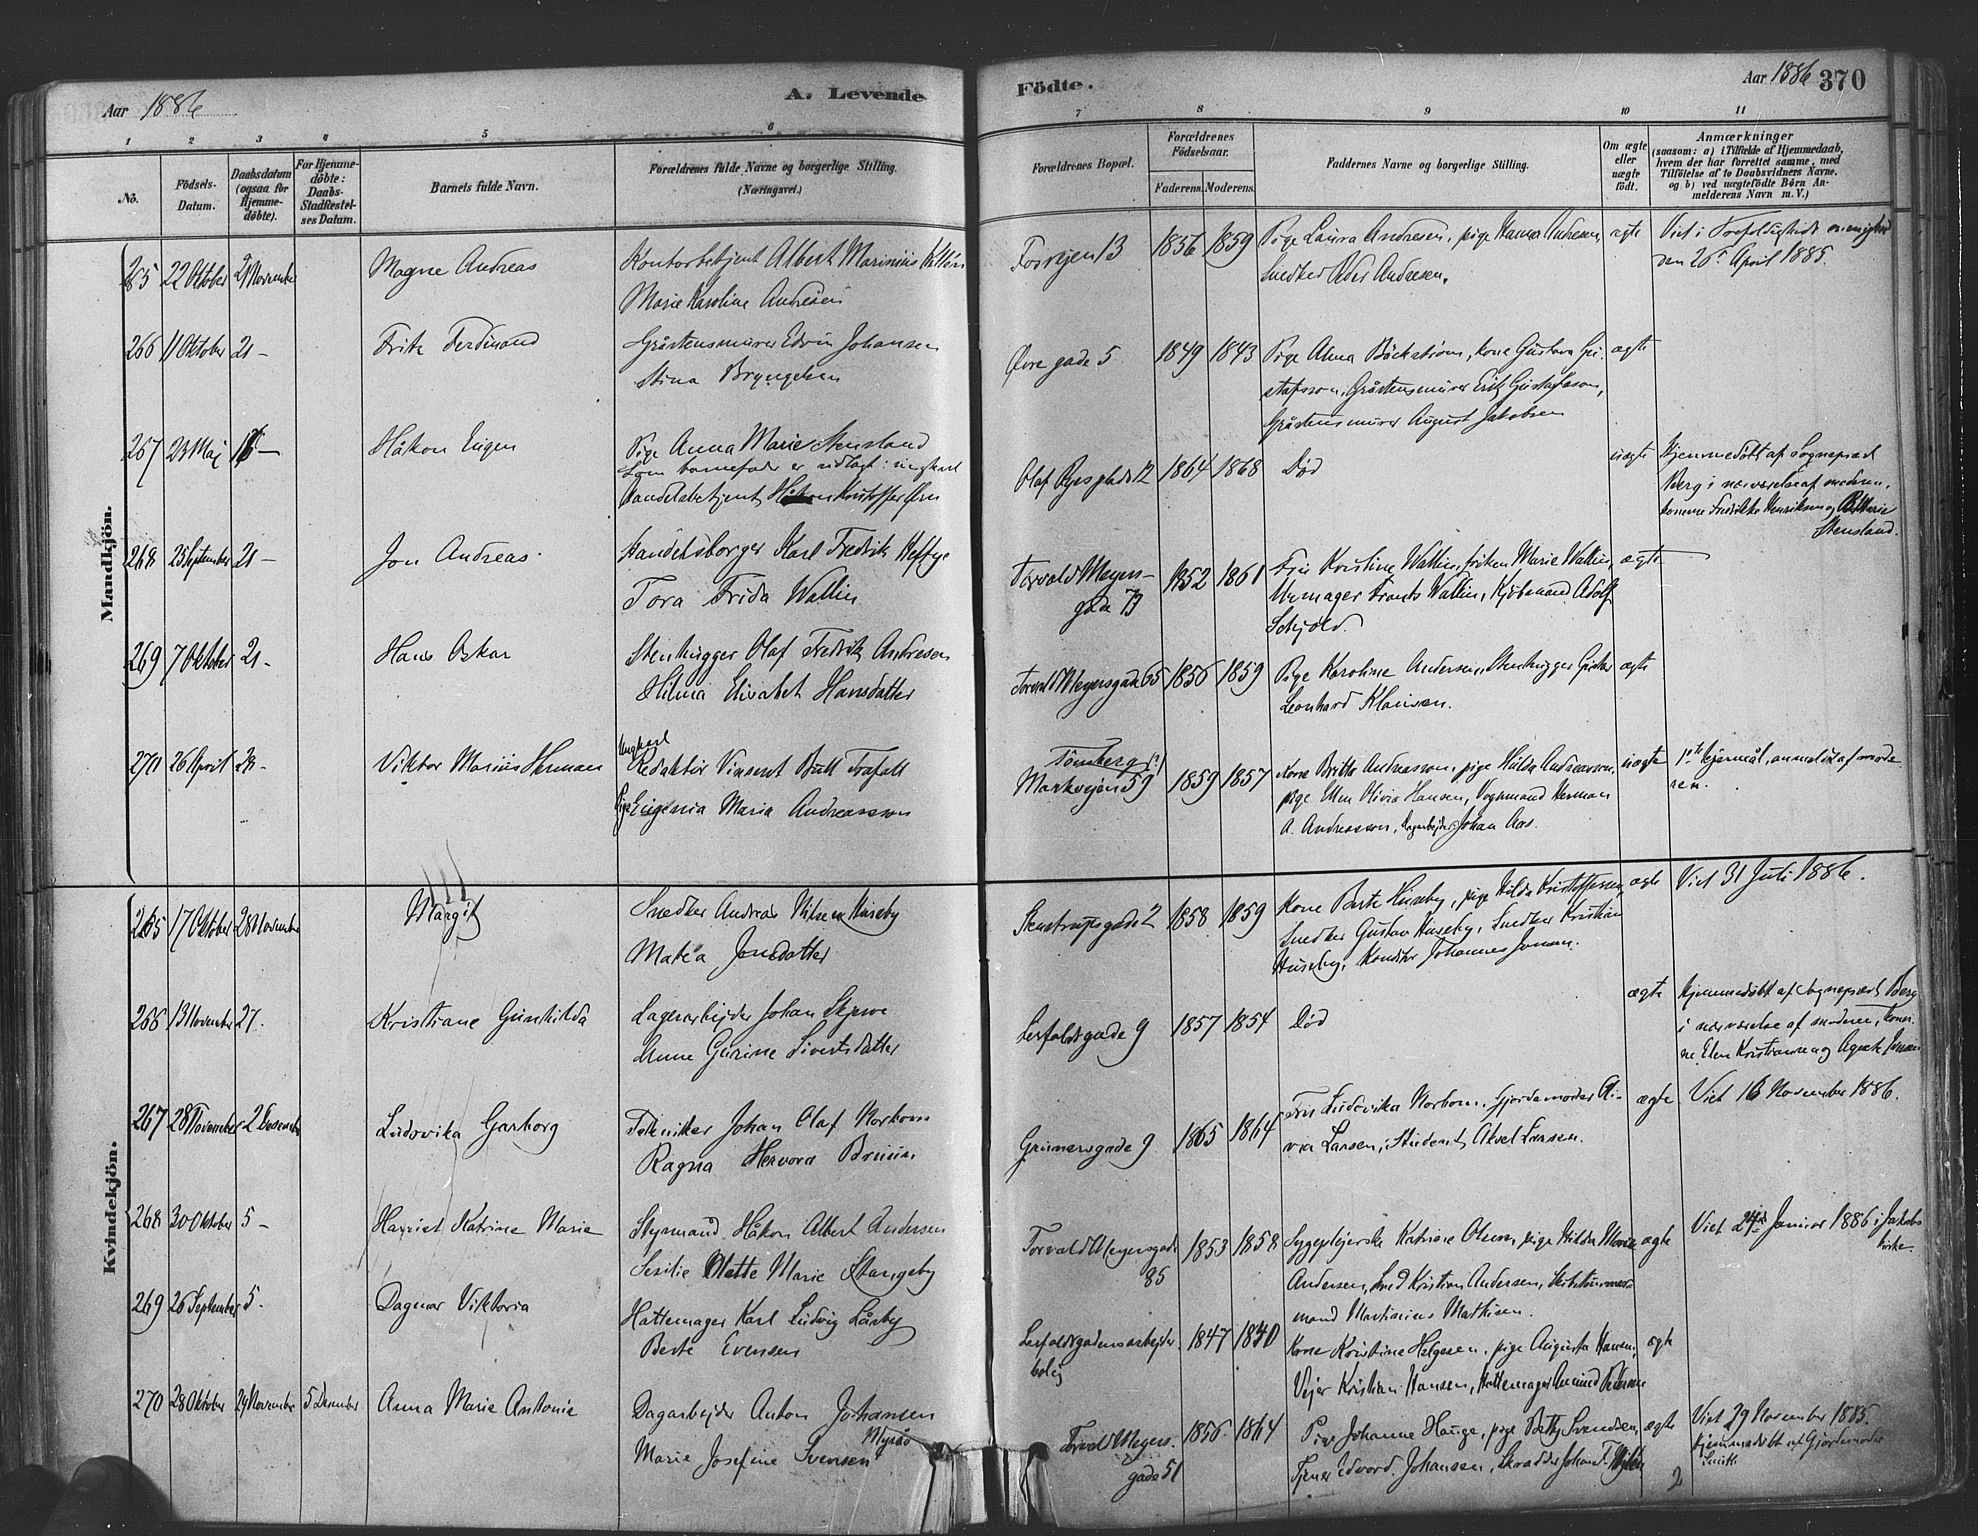 Aar 1886
A. Levende
Födte.
Aar 1886 370
1 2 3 4 5 6 7 8 9 10 11
No.
Födsels-Datum.
Daabsdatum (ogsaa for Hjemme-döbte).
For Hjemme-döbte: Daabs-Stadfæstel-ses Datum.
Barnets fulde Navn.
Forældrenes fulde Navne og borgerlige Stilling. (Næringsvei.)
Forældrenes Bopæl.
Forældrenes Födselsaar.
Faderens. Moderens.
Faddernes Navne og borgerlige Stilling.
Om ægte eller uægte födt.
Anmærkninger
(saasom: a) i Tilfælde af Hjemmedaab,
hvem der har forrettet samme, med
Tilföielse af to Daabsvidners Navne.
og b) ved uægtefödte Börn An-
melderens Navn m. V.)
Mandkjön.
265 22 Oktober 21 November Magne Andreas
Kontorbetjent Albert Marinius
Marie Karoline Andresen
13 1856 1859
Pige Laura Andresen, pige Hanna Andresen,
Snedker Andresen.
ægte
Viet i
den 26 April 1885.
266 11 Oktober 21 - Fritz Ferdinand
Gråstensmurer Edvin Johansen
Stina Bryngelsen
Øvre gade 5 1849 1843
Pige Alma Bäckström, kone Gustava Gu-
stafsson, Gråstensmurer Erik Gustafsson,
Gråstensmurer August Jakobsen
ægte
267 23 Maj 16 - Håkon Eugen
Pige Anna Marie Stensland
Som barnefader er udlagt: ungkarl
Handelsbetjent Kristoffer
Olaf Ryesplads 12 1864 1868 Död
uægte
Hjemmedöbt af Sognepræst
Berg i nærværelse af moderen,
konerne Fredrikke Henriksen og Marie
Stensland.
268 25 September 21 - Jon Andreas
Handelsborger Karl Fredrik Heftye
Tora Frida Wallin
Torvald Meyers-
gade 79 1852 1861
Fru Kristine Wallin, fröken Marie Wallin,
Urmager Frants Wallin, Kjöbmand Adolf
Schjöld.
ægte
269 7 Oktober 21 - Hans Oskar
Stenhugger Olaf Fredrik Andresen
Hilma Elisabet Hansdatter
Torvald Meyersgade 65 1856 1859
Pige Karoline Andersen, Stenhugger Gustav
Leonhard Klausen.
ægte
270 26 April 28 - Viktor Marius Herman
Ungkarl
Redaktör Vinsent Bull Trafalt
Pige Eugenia Maria Andreasson
Tönsberg (?)
Markvejen 59 1859 1857
Kone Britta Andreasson, pige Hilda Andreasson,
pige Ellen Olivia Hansen, Vognmand Herman
A. Andreasson, Dagarbejder Johan Aas.
uægte
1ste lejermål, anmeldt af mode-
ren.
Kvindekjön.
265 17 Oktober 28 November Margit
Snedker Andreas Nilsen Huseby
Matea Jonsdatter
Stenstrupsgade 2 1858 1859
Kone Berte Huseby, pige Hilda Kristoffersen,
Snedker Gustav Huseby, Snedker Kristian
Huseby, Konditor Johannes Jonsen.
ægte
Viet 31 Juli 1886.
266 13 November 27. Kristiane Gunhilda
Lagerarbejder Johan Skjerve
Anne Gurine Sivertsdatter
Seilduksgade 9 1857 1854 Död
ægte
Hjemmedöbt af Sognepræst Berg
i nærværelse af moderen, koner-
ne Elen Kristiansen og Agnete
267 28 November 2 Desember Ludovika Garborg
Tekniker Johan Olaf Norbom
Ragna Hervora Bruun
Grünersgade 9 1865 1864
Fru Ludovika Norbom, Gjordemoder
Larsen, Student Aksel Larsen.
ægte
Viet 16 November 1886.
268 30 Oktober 5 - Harriet Katrine Marie
Styrmand Håkon Albert Andersen
Sesilie Mette Marie Stangeby
Torvald Meyersgade
85 1853 1858
Sygeplejerske Katrine Olsen, pige Hilda Marie
Andersen, Smed Kristian Andersen,
mand Martinius Mathisen.
ægte
Viet Januar 1886 i Jakobs
kirke.
269 26 September 5. Dagmar Viktoria
Hattemager Karl Ludvig Låsby
Berte Evensen
arbejder-
bolig 1847 1840
Kone Kristine Helgesen, pige Augusta Hansen,
Vejer Kristian Hansen, Hattemager Amund Pedersen
ægte
270 28 Oktober 29 November 5 Desember Anna Marie Antonie
Dagarbejder Anton Johansen
Marie Josefine Svensen
Torvald Meyers-
gade 51 1856 1864
Pige Johanne Hauge, pige Betty Svendsen,
Tjener Edvard Johanssen, Skrædder Johan
ægte
Viet 29 November 1885.
Hjemmedöbt af Gjordemoder
Smith
2